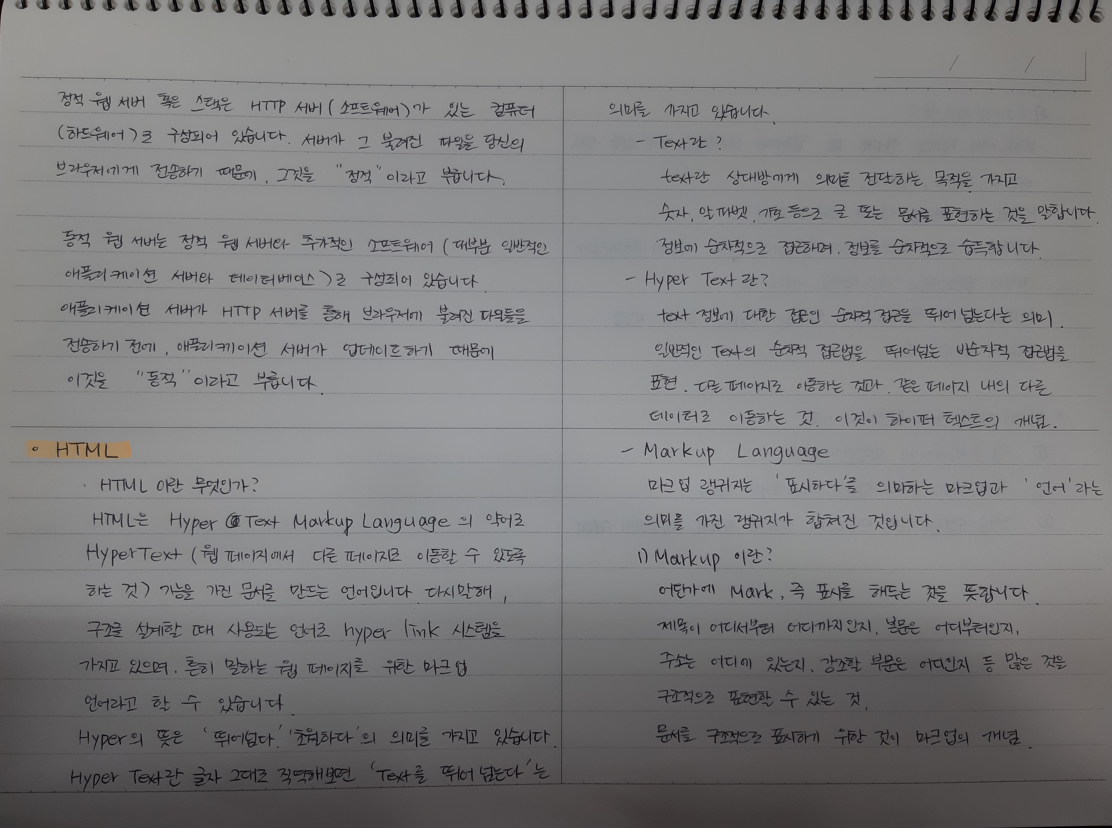 정적 웹 서버 혹은 스택은 HTTP 서버(소프트웨어)가 있는 컴퓨터
(하드웨어)로 구성되어 있습니다. 서버가 그 불려진 파일을 당신의
브라우저에게 전송하기 때문에, 그것을 "정적"이라고 부릅니다.
동적 웹 서버는 정적 웹 서버와 추가적인 소프트웨어(대부분 일반적인
애플리케이션 서버와 데이터베이스)로 구성되어 있습니다.
애플리케이션 서버가 HTTP 서버를 통해 브라우저에 불려진 파일들을
전송하기 전에, 애플리케이션 서버가 업데이트하기 때문에
이것을 "동적"이라고 부릅니다.
◦ HTML
· HTML 이란 무엇인가?
HTML은 Hyper Text Markup Language 의 약어로
HyperText (웹 페이지에서 다른 페이지로 이동할 수 있도록
하는 것) 기능을 가진 문서를 만드는 언어입니다. 다시말해,
구조를 설계할 때 사용되는 언어로 hyper link 시스템을
가지고 있으며, 흔히 말하는 웹 페이지를 위한 마크업
언어라고 할 수 있습니다.
Hyper의 뜻은 '뛰어넘다' '초월하다'의 의미를 가지고 있습니다.
Hyper Text란 글자 그대로 직역해보면 'Text를 뛰어 넘는다'는
의미를 가지고 있습니다.
- Text란?
text란 상대방에게 의미를 전달하는 목적을 가지고
숫자, 알파벳, 기호 등으로 글 또는 문서를 표현하는 것을 말합니다.
정보에 순차적으로 접근하며, 정보를 순차적으로 습득합니다.
- Hyper Text란?
text 정보에 대한 접근인 순차적 접근을 뛰어 넘는다는 의미.
일반적인 Text의 순차적 접근법을 뛰어넘는 비순차적 접근법을
표현. 다른 페이지로 이동하는 것과, 같은 페이지 내의 다른
데이터로 이동하는 것. 이것이 하이퍼 텍스트의 개념.
- Markup Language
마크업 랭귀지는 '표시하다'를 의미하는 마크업과 '언어'라는
의미를 가진 랭귀지가 합쳐진 것입니다.
1) Markup 이란?
어딘가에 Mark, 즉 표시를 해두는 것을 뜻합니다.
제목이 어디서부터 어디까지인지, 본문은 어디부터인지,
주소는 어디에 있는지, 강조할 부분은 어디인지 등 많은 것을
구조적으로 표현할 수 있는 것.
문서를 구조적으로 표시하기 위한 것이 마크업의 개념.